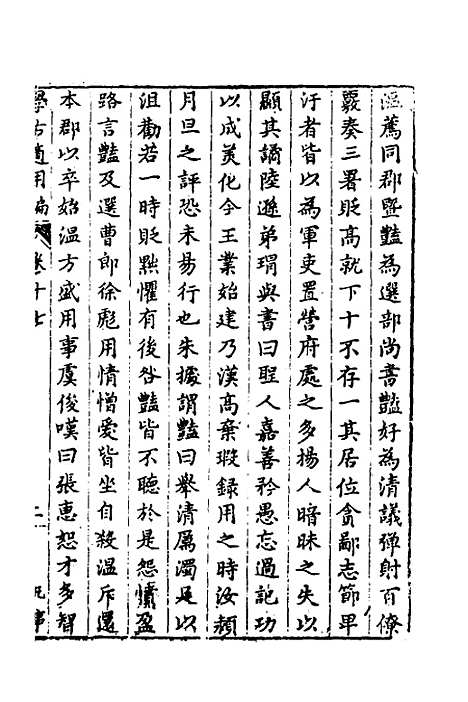 溫薦同郡曁豔為選部尚書豔好為清議彈射百僚
覈奏三署貶高就下十不存一其居位貪鄙志節卑
汙者皆以為軍吏置營府處之多揚人暗昧之失以
顯其謫陸遜弟瑁與書曰聖人嘉善矜愚忘過記功
以成美化今王業始建乃漢高棄瑕錄用之時汝頴
月旦之評恐未易行也朱據謂豔曰舉清厲濁足以
沮勸若一時貶黜懼有後咎豔皆不聽於是怨憤盈
路言豔及選曹郎徐彪用情憎愛皆坐自殺溫斥還
本郡以卒始溫方盛用事虞俊嘆曰張惠恕才多智
學古適用編 卷十七 二